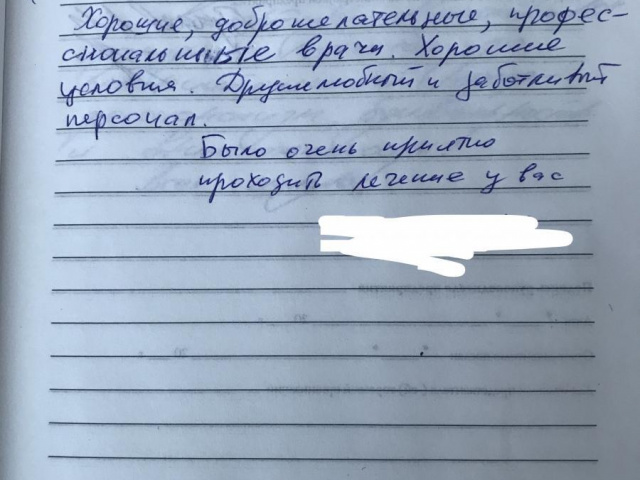 Хорошие, доброжелательные, профес-
сиональные врачи. Хорошие
условия. Дружелюбный и заботливый
персонал.
Было очень приятно
проходить лечение у вас